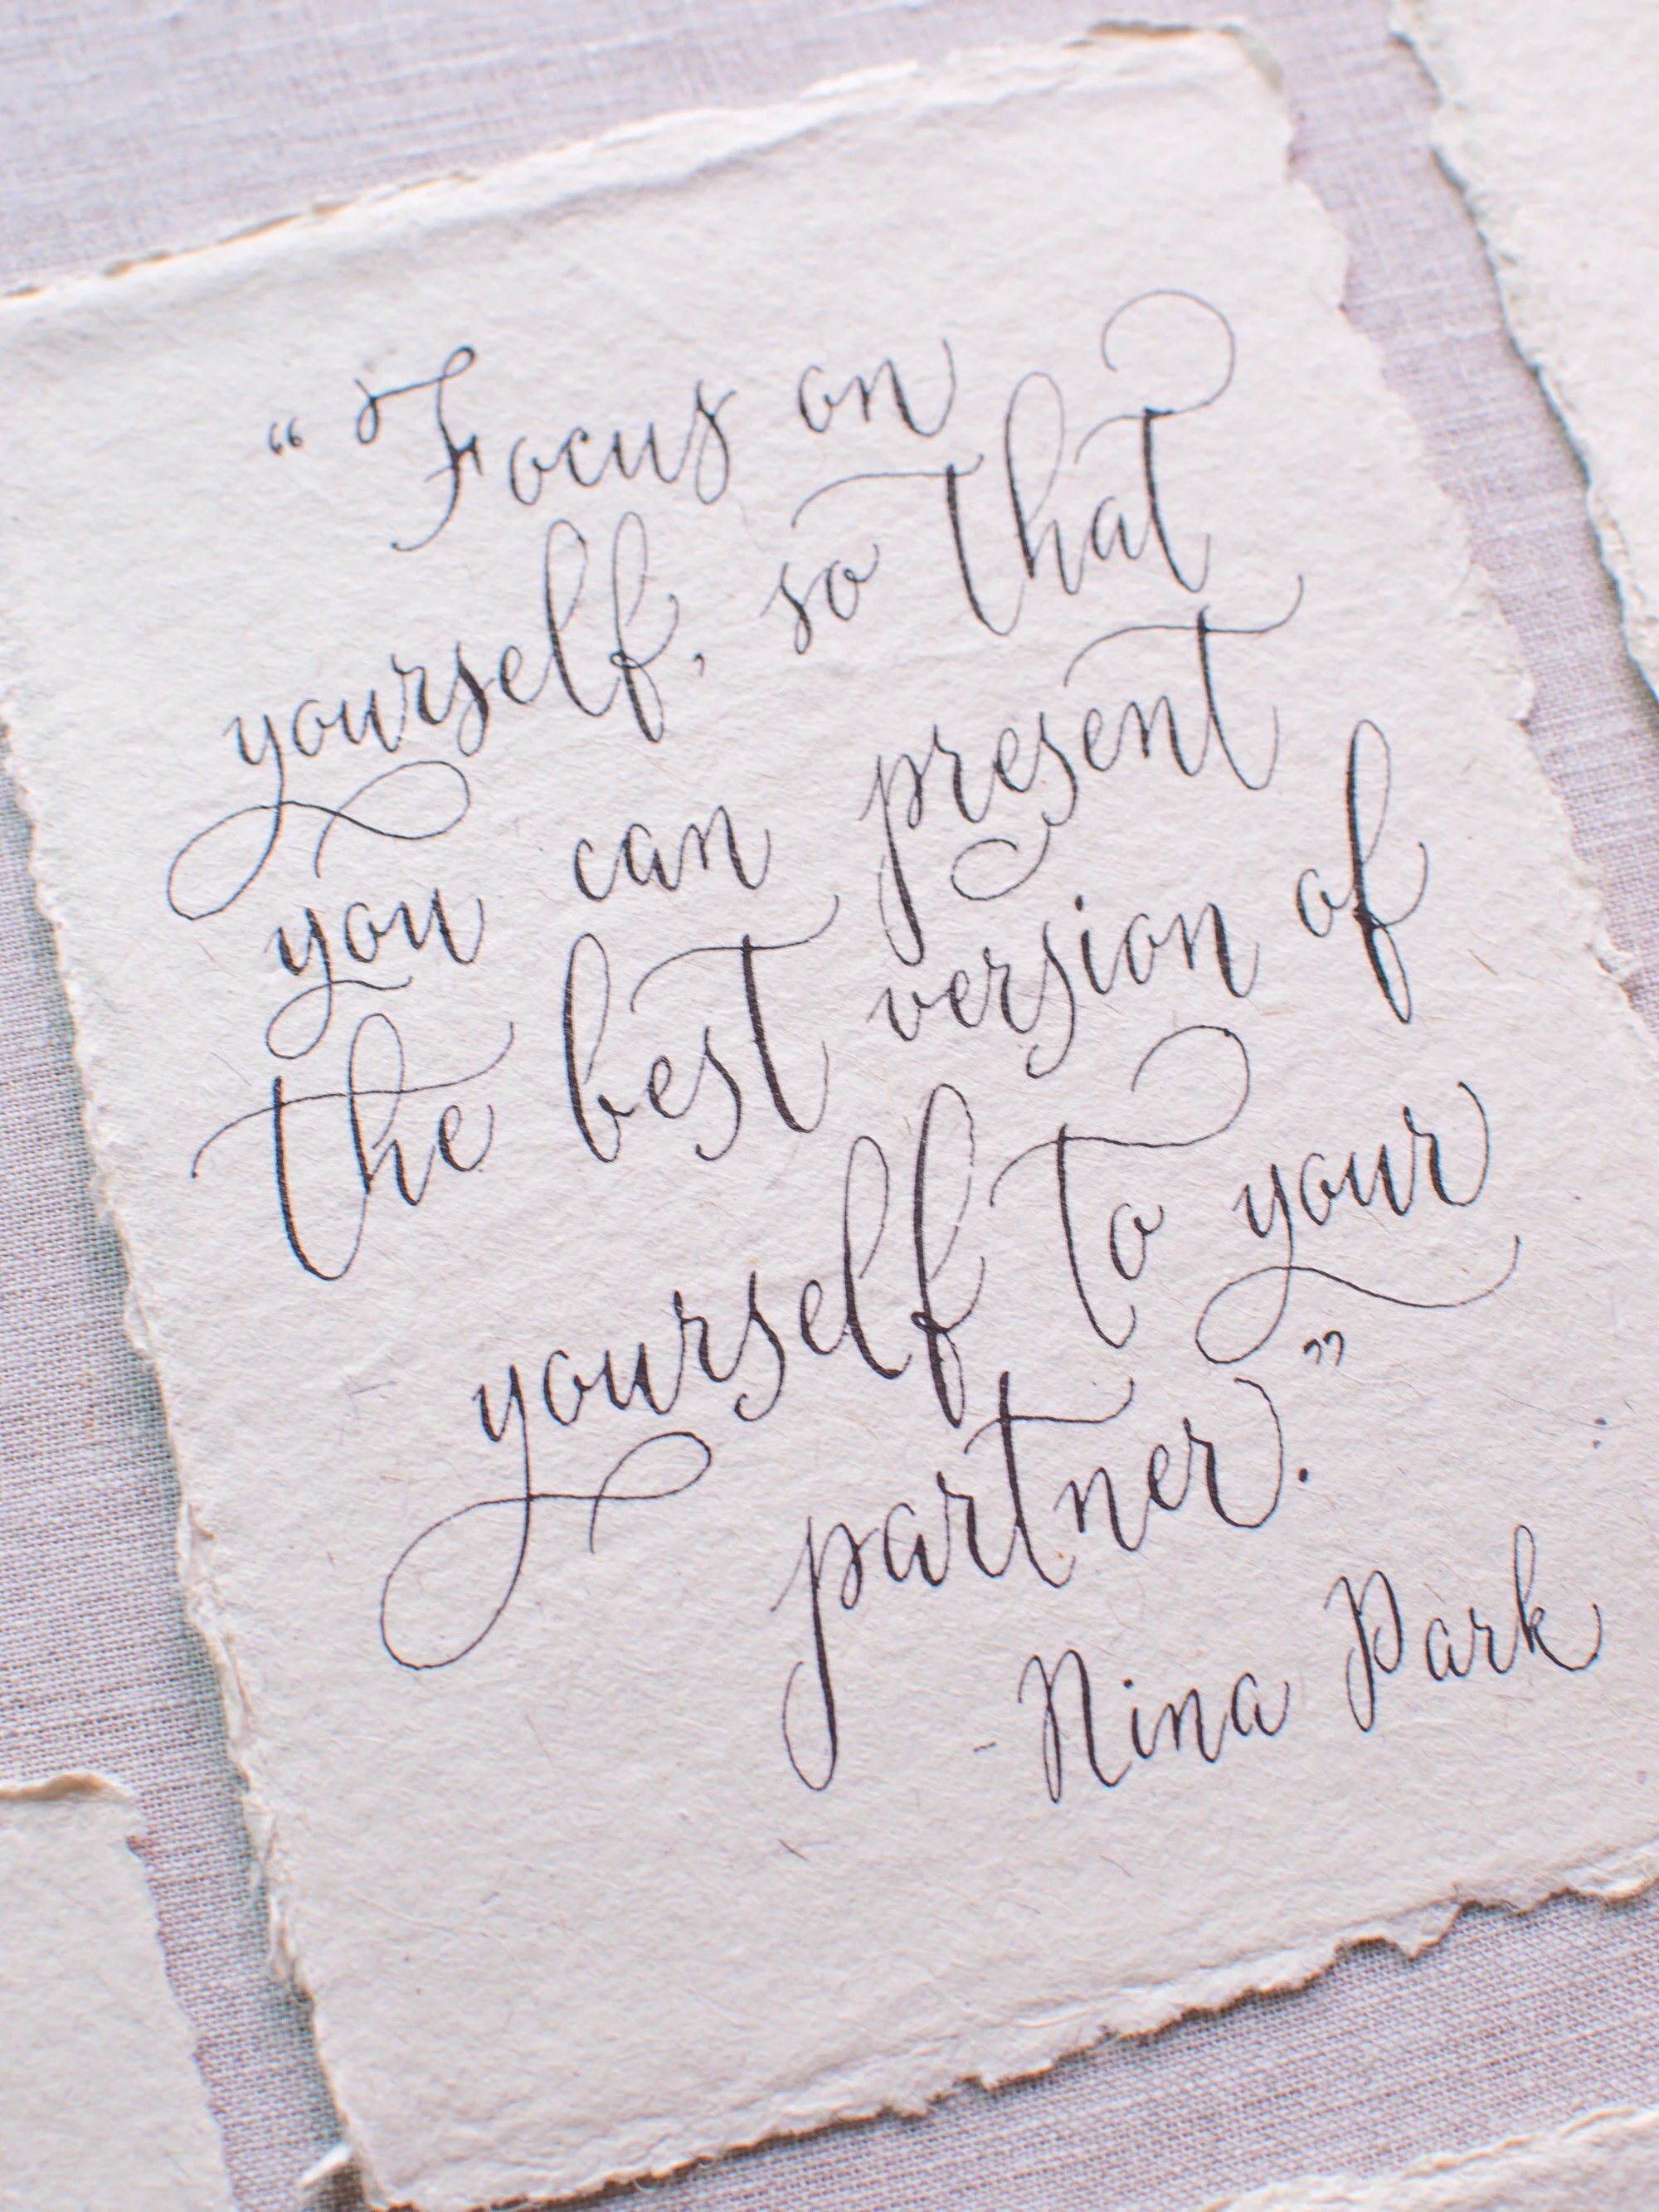 “Focus on
yourself, so that
you can present
the best version of
yourself to your
partner.”
-Nina Park